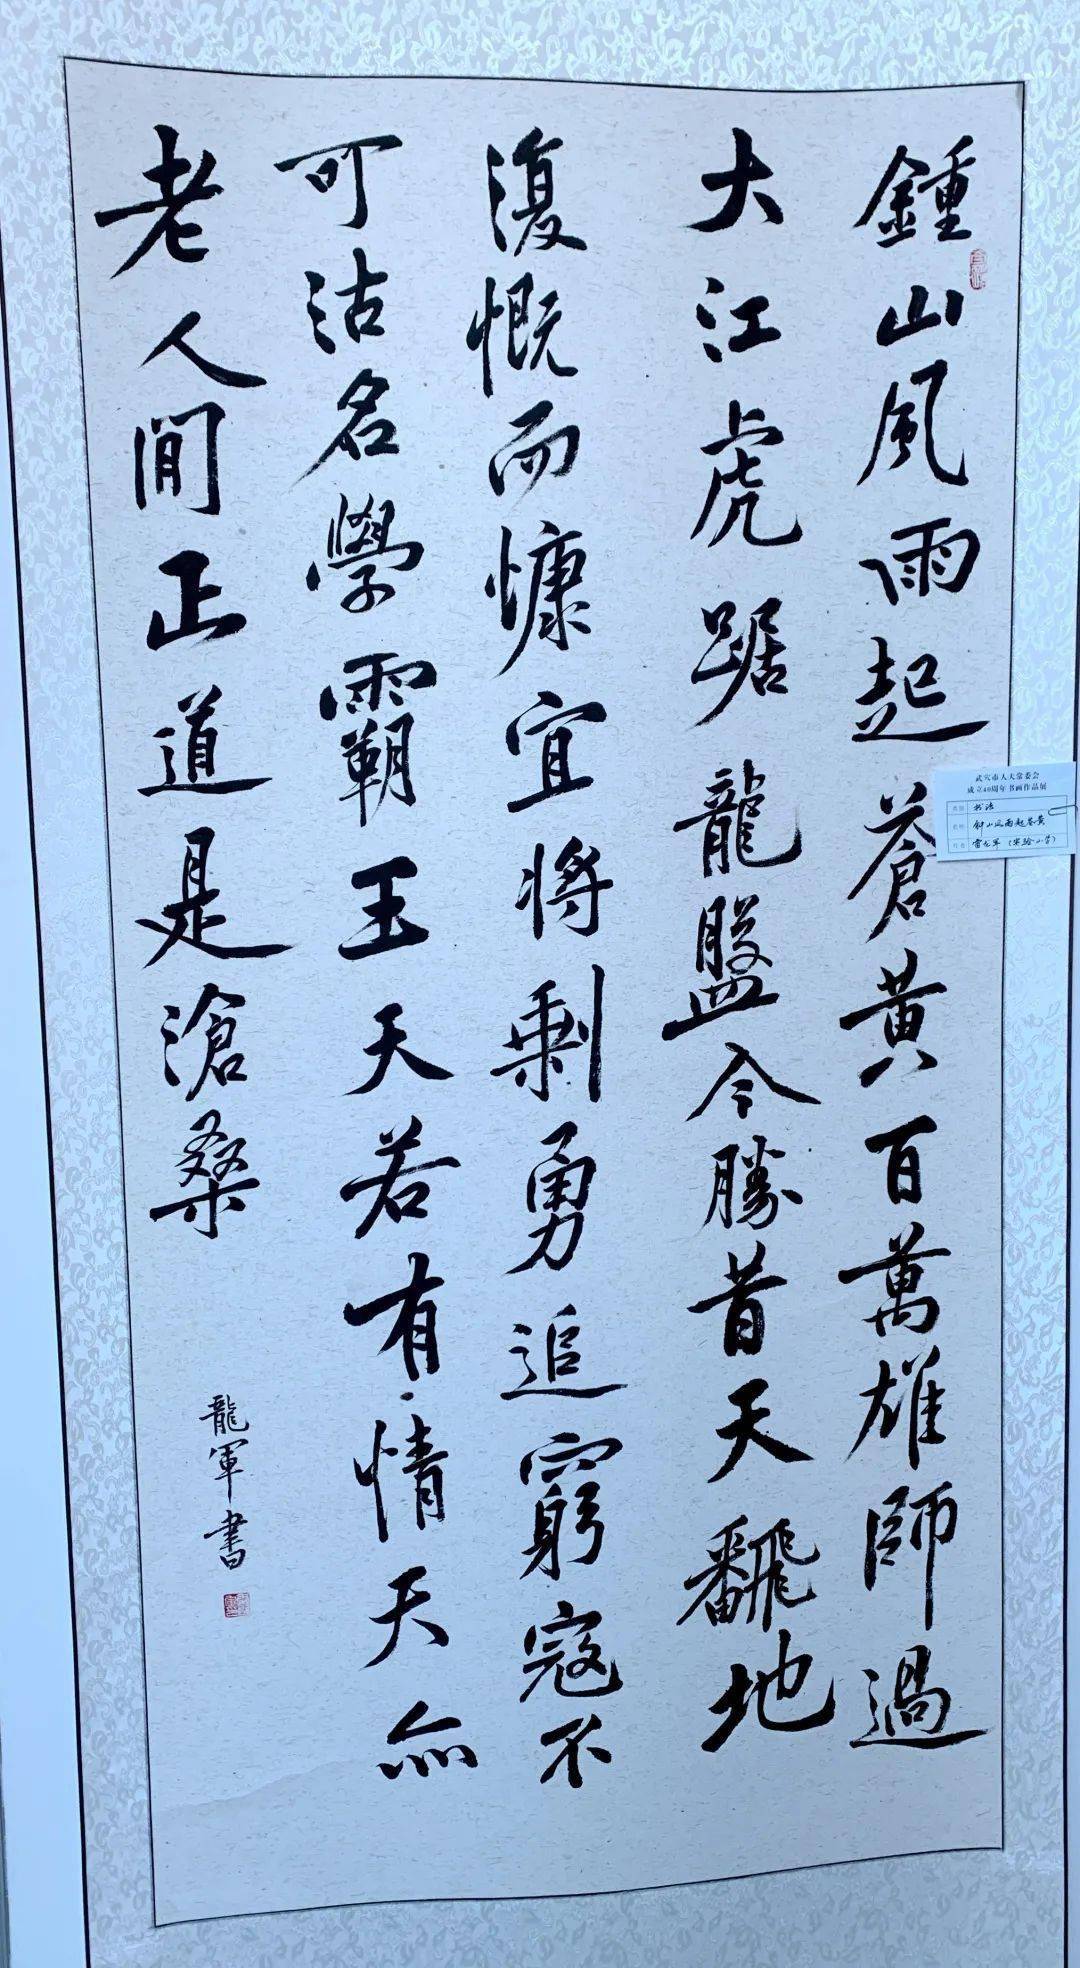 鍾山風雨起蒼黄百萬雄師過
大江虎踞龍盤今勝昔天飜地
復慨而慷宜將剩勇追窮寇不
可沽名學霸王天若有情天亦
老人間正道是滄桑
龍軍書
武穴市人大常委会
成立40周年书画作品展
类别 书法
名称 钟山风雨起苍黄
作者 雷龙军（实验小学）